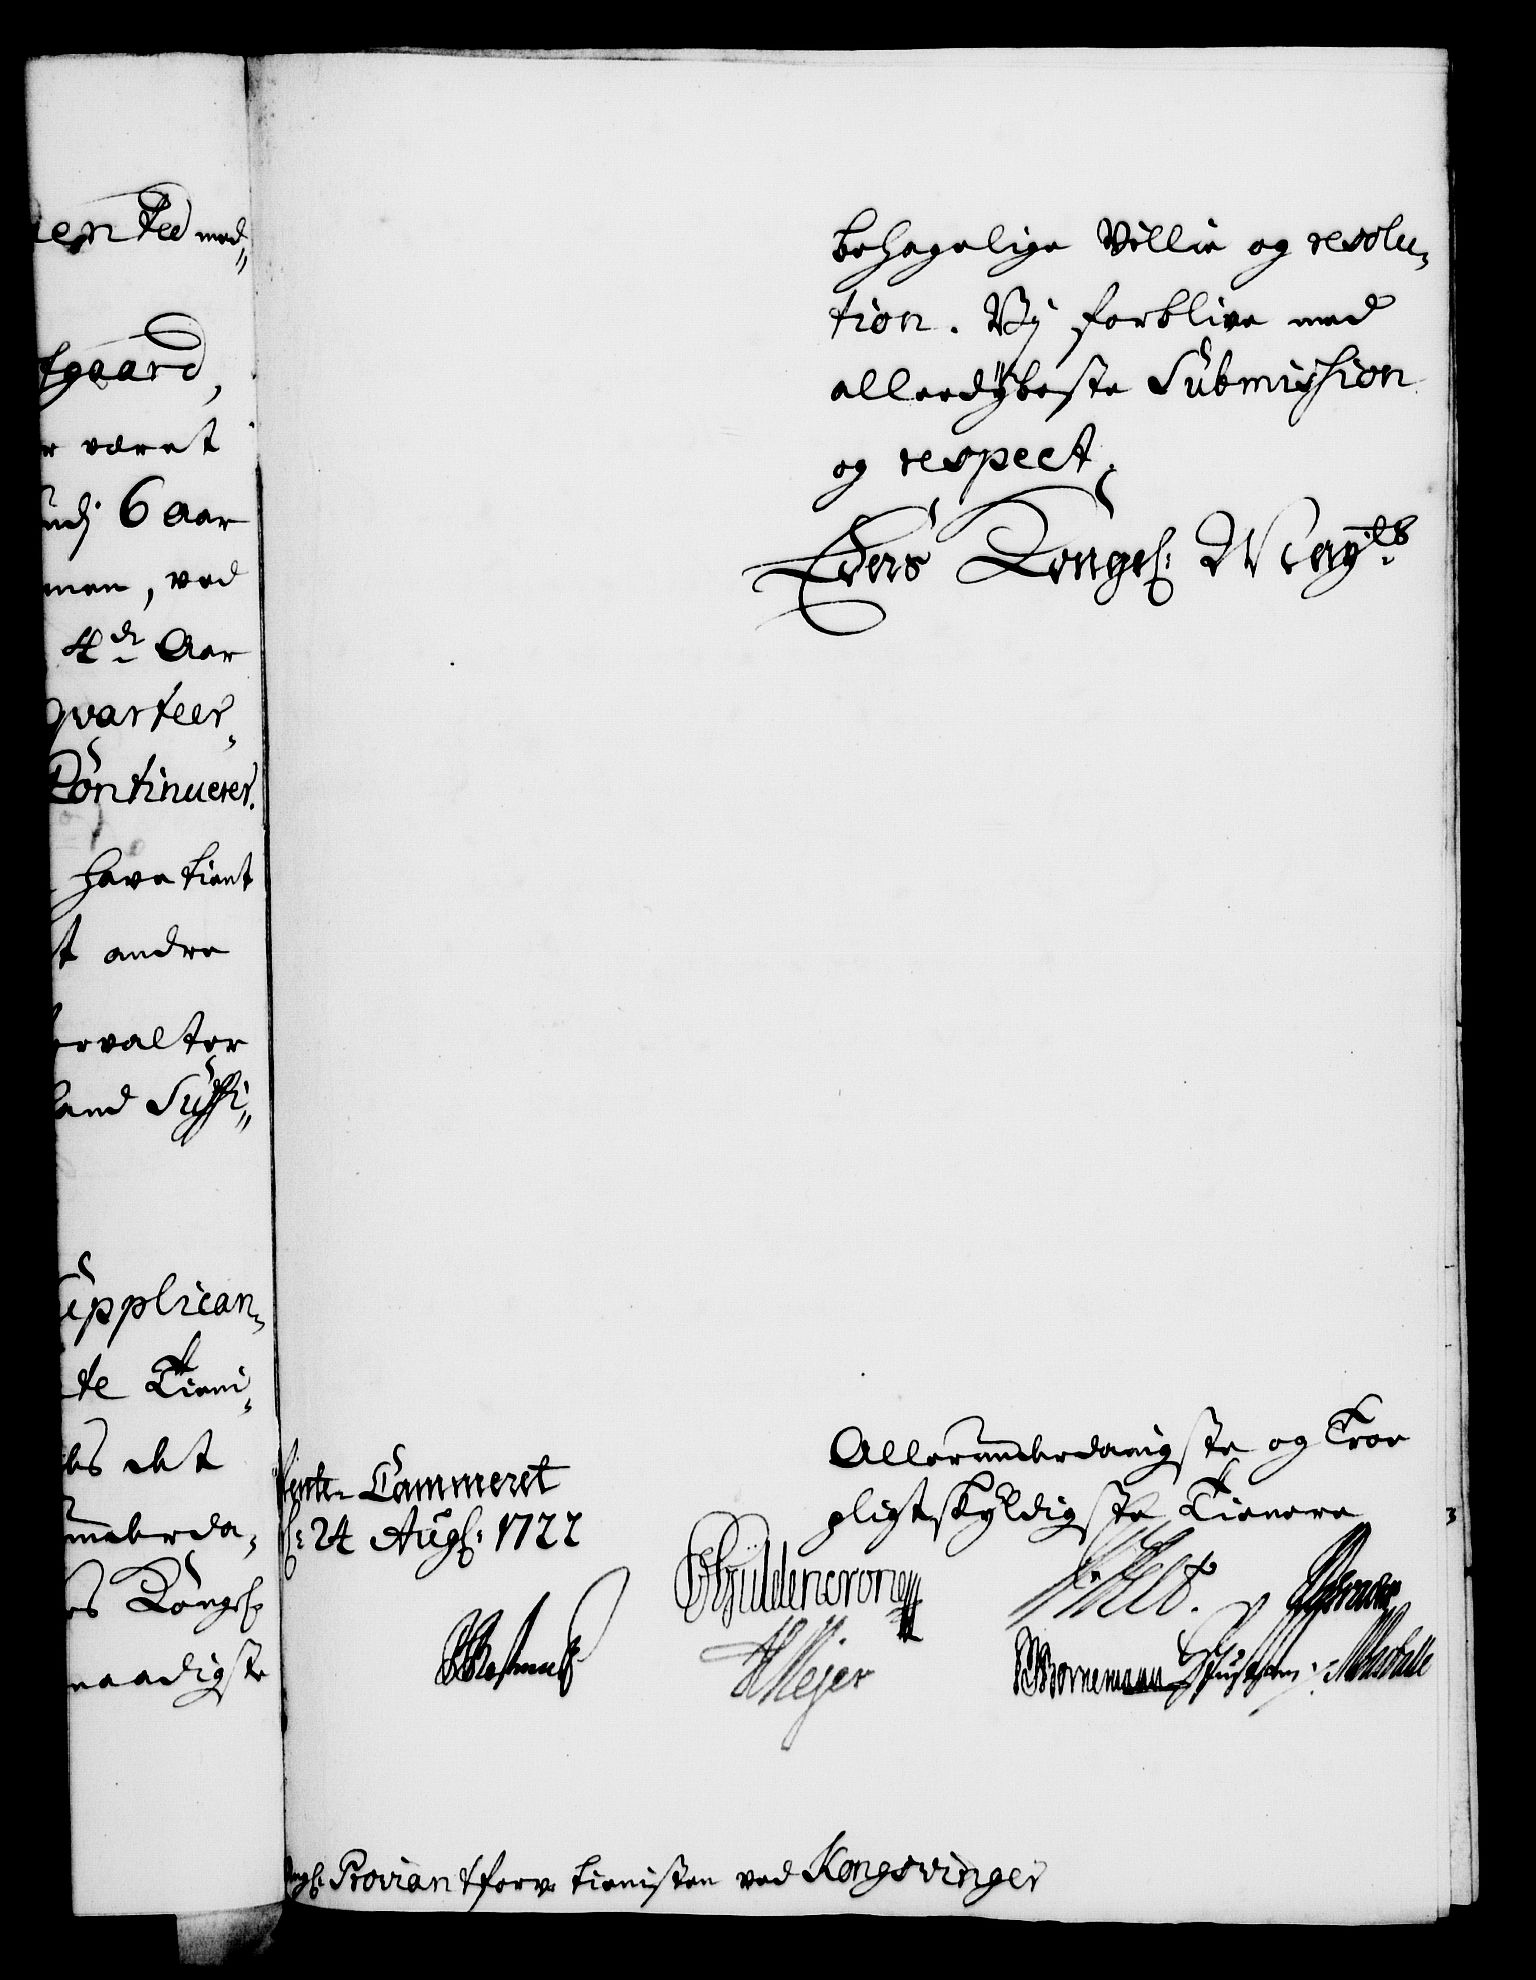 ented med„
fgaard,
r været
6 Aar
men, ved
4de Aar
qvarteer„
Continuerer.
have tient
t andre
orvalter
hand Suffi„
upplican„
te Tieni„
det
underda„
Kongel:
naadigste
behagelige Villie og resolu„
tion. Vi forblive med
allerdÿbeste Submission
og respect,
Eders Kongel: Mayts
Allerunderdanigste og Troe
pligtskÿldigste Tienere
Rente-Cammeret
24 Augl: 1722
Güldencrone
Meyer
Bornemann
Proviantforv: tienisten ved Kongsvinger